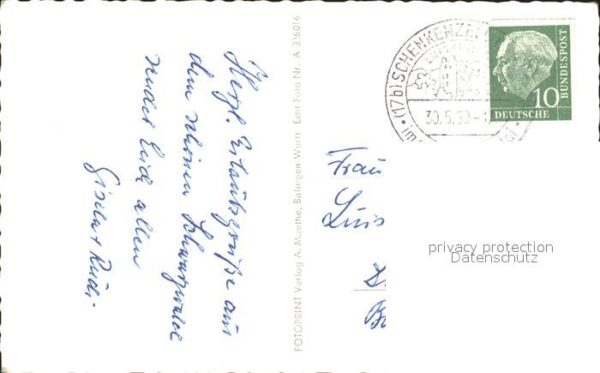 Herzl. Urlaubsgrüße aus
dem schönen Schwarzwald
sendet Euch allen
Gisela + Rudi.
FOTOPRINT Verlag A. Mauthe, Balingen Württ Echt Foto Nr. A 3/6016
(17b) SCHENKENZELL
30.5.60
10
DEUTSCHE
BUNDESPOST
Frau
Luis
privacy protection
Datenschutz